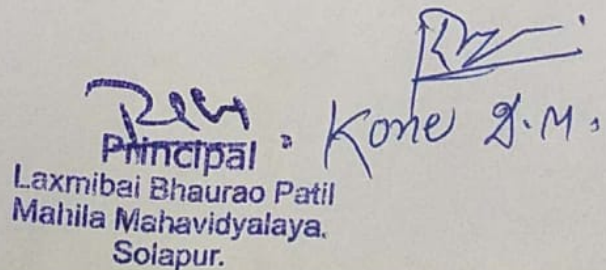 Principal
Kone D. M.
Laxmibai Bhaurao Patil
Mahila Mahavidyalaya.
Solapur.